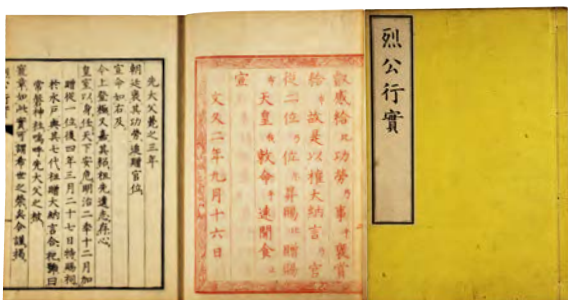 烈公行實
叡感給比功勞乃事乎褒賞
給布故是以權大納言乃官
從二位乃位昇賜比贈賜
天皇敕命乎速聞食止
宣
文久二年九月十六日
先大父薨之三年
朝廷褒其功勞追贈官位
宣命如右及
今上登極又嘉其紹祖先遺志存心
皇室以身任天下安危明治二年十二月加
贈從一位後四年三月二十七日特賜祠
於水戶與其七代祖贈大納言合祀號曰
常磐神社嗟呼先大父之被
寵章如此實可謂希世之榮矣今謹揭